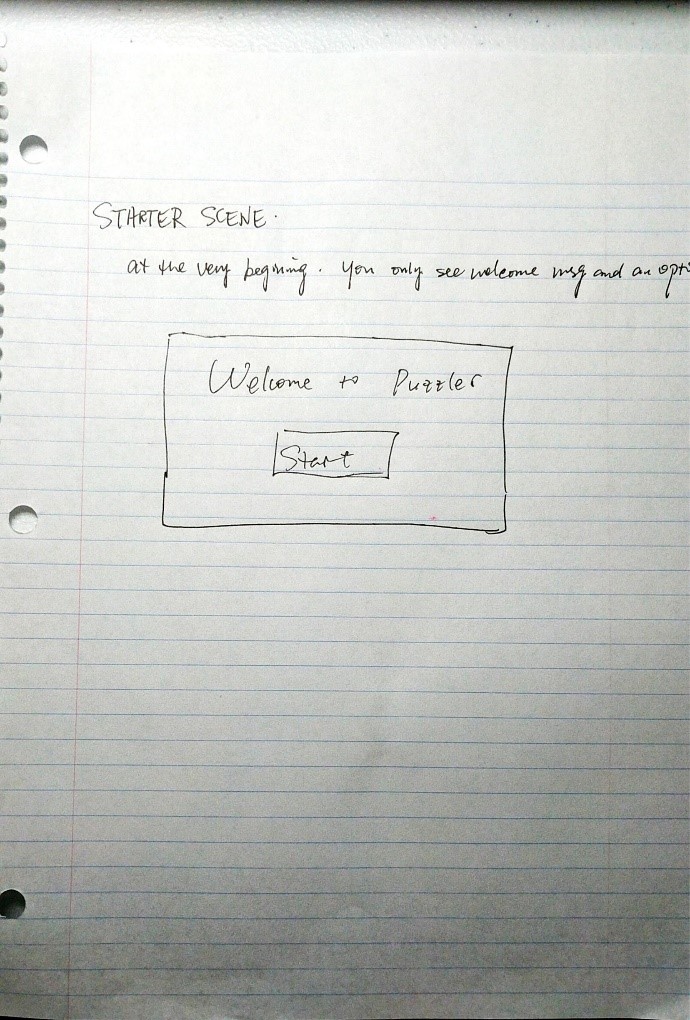 STARTER SCENE.
at the very begining. You only see welcome msg and an opti
Welcome to Puzzler
Start